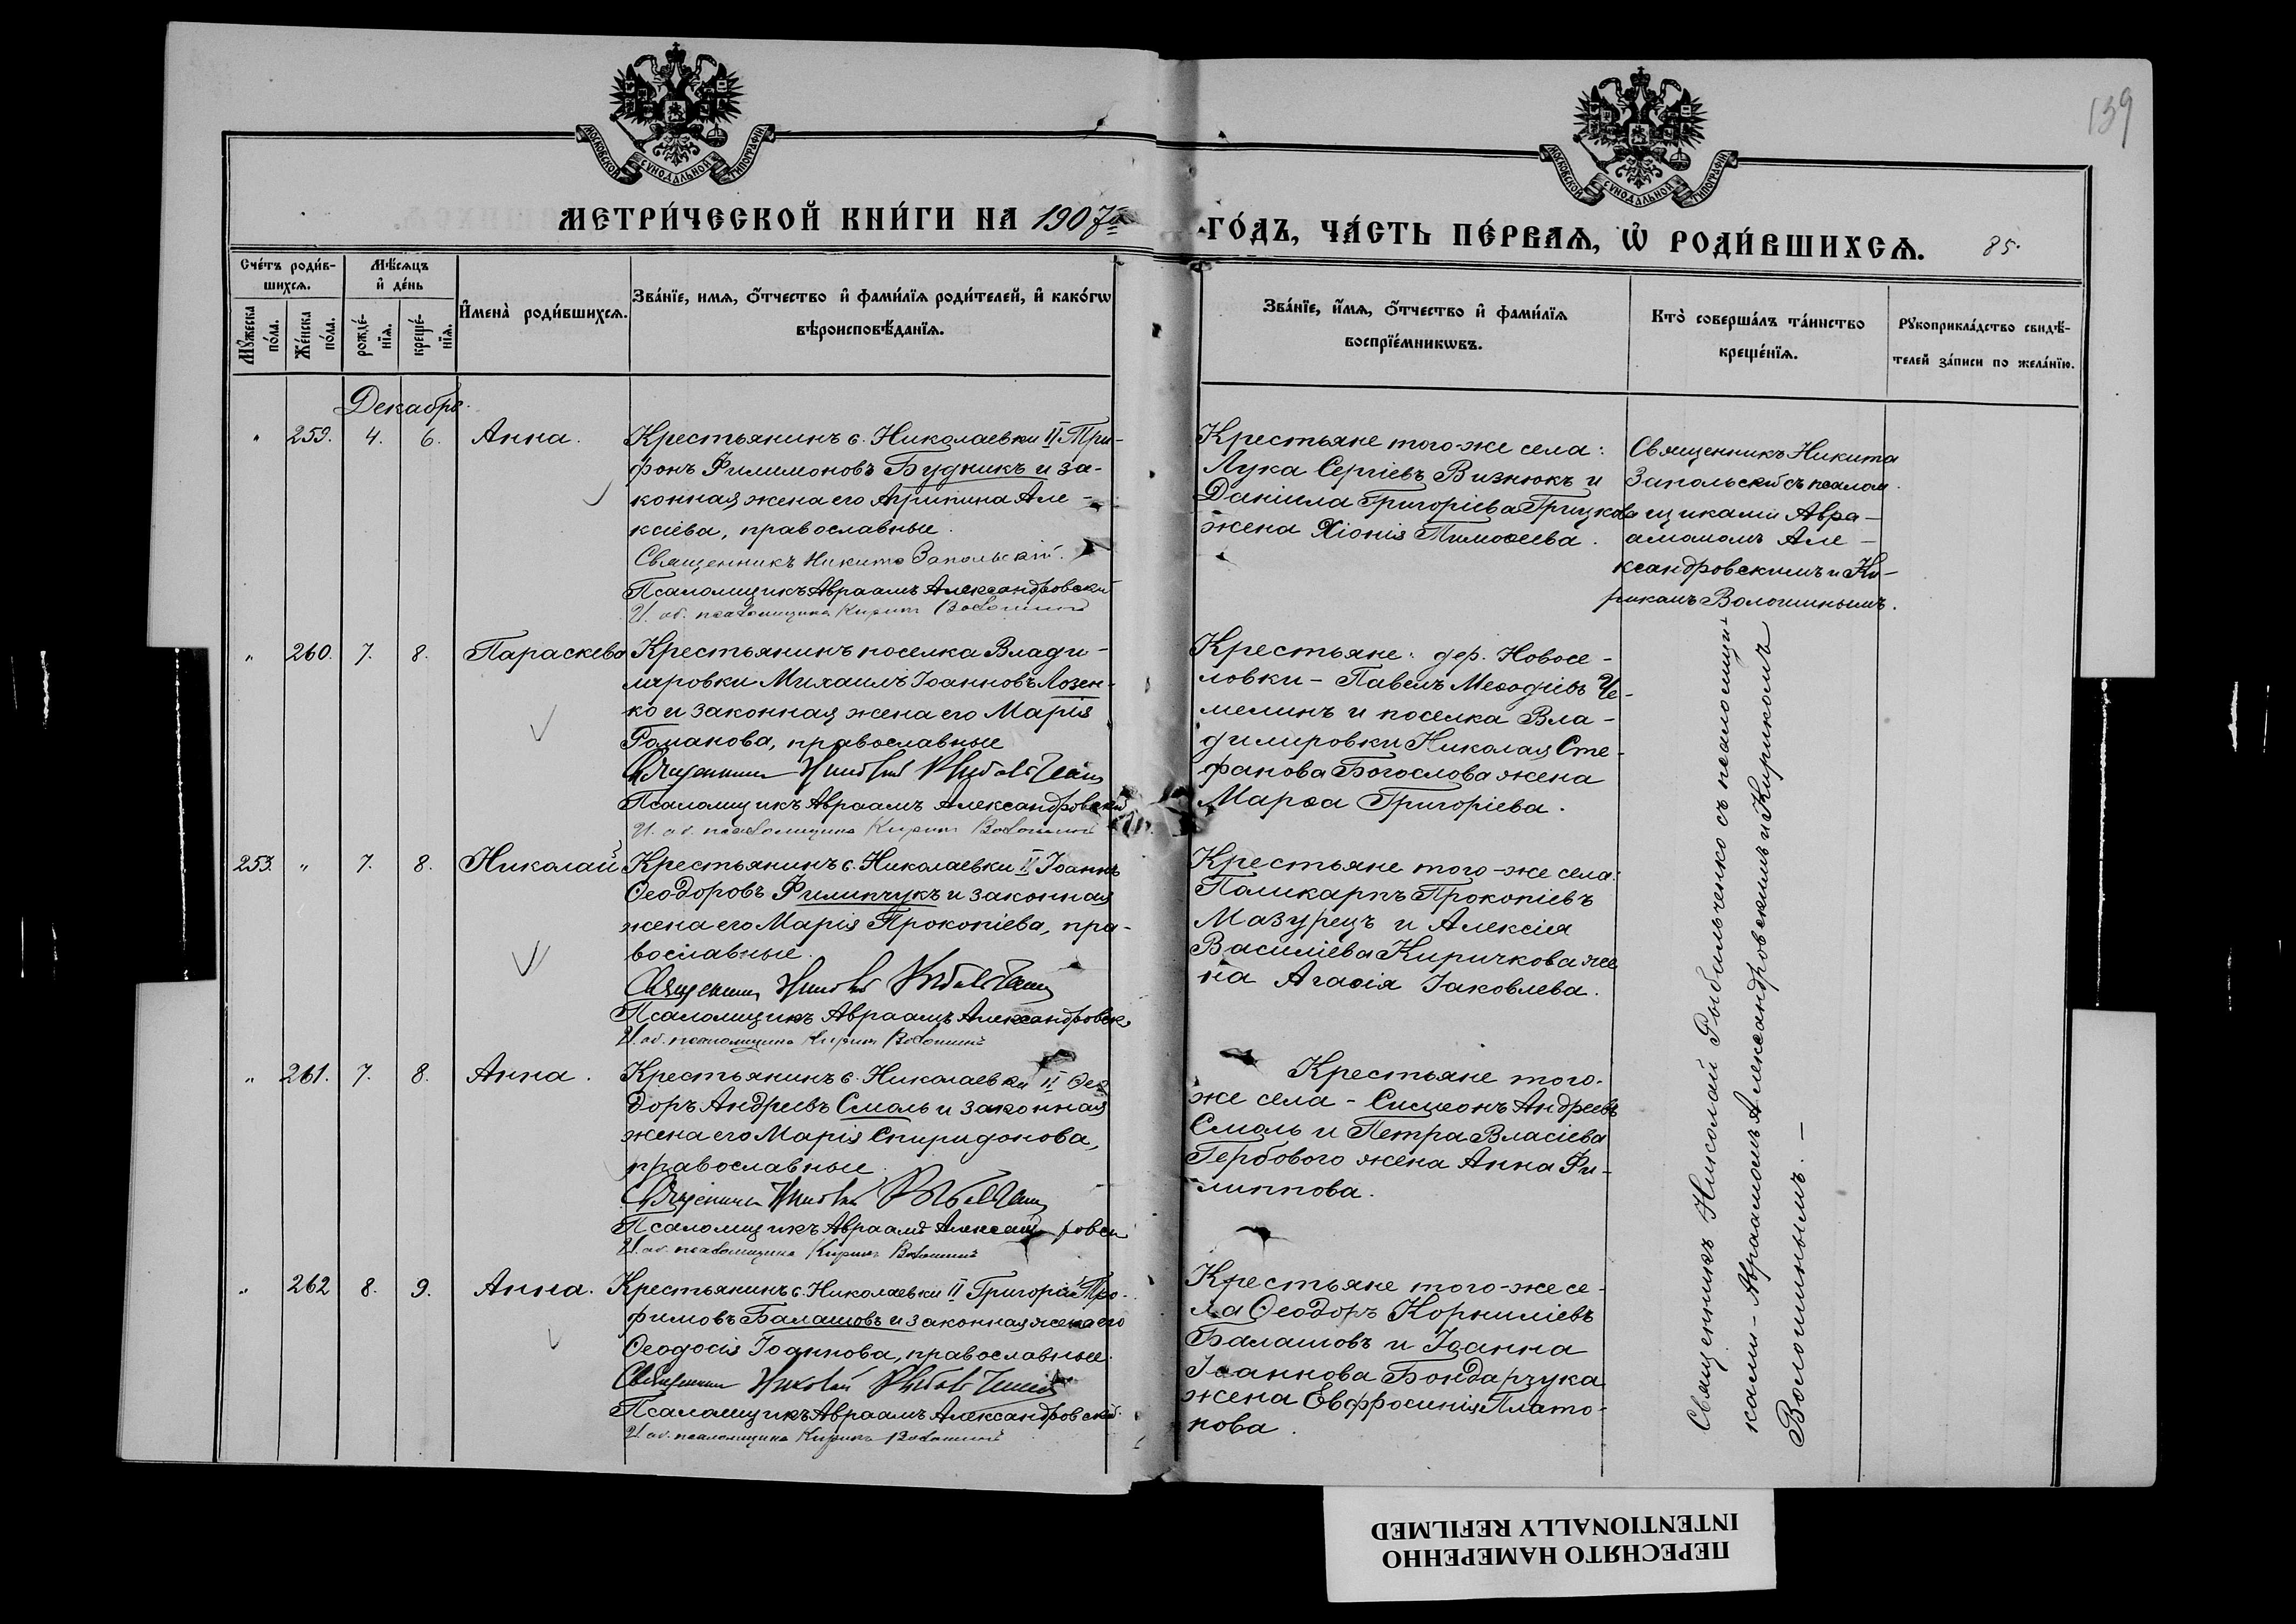 139
МОСКОВСКОЙ СѴНОДАЛЬНОЙ ТИПОГРАФІИ
МОСКОВСКОЙ СѴНОДАЛЬНОЙ ТИПОГРАФІИ
МЕТРИ́ЧЕСКОЙ КНИ́ГИ НА 1907й
ГО́ДЪ, ЧА́СТЬ ПЕ́РВАѦ, Ѡ҆ РОДИ́ВШИХСѦ.
85.
Сче́тъ роди́в-
шихсѧ.
Мꙋ́жеска
по́ла.
Же́нска
по́ла.
Мѣ́сѧцъ
и҆ де́нь
рожде́-
нїѧ.
креще́-
нїѧ.
И҆мена̀ роди́вшихсѧ.
Зва́нїе, имѧ, ѻ҆́тчество и҆ фами́лїѧ роди́телей, и҆ како́гѡ
вѣроисповѣ́данїѧ.
Зва́нїе, и҆́мѧ, ѻ҆́тчество и҆ фами́лїѧ
воспрїе́мникѡвъ.
Кто̀ соверша́лъ та́инство
креще́нїѧ.
Рꙋкоприкла́дство свидѣ́-
телей за́писи по жела́нїю.
Декабрь.
" 259. 4. 6. Анна.
Крестьянинъ с. Николаевки II Три-
фонъ Филимоновъ Будникъ и за-
конная жена его Агрипина Але-
ксіева, православные.
Священникъ Никита Запольскій.
Псаломщикъ Авраамъ Александровскій
И. об. псаломщика Кирикъ Волошинъ
Крестьяне того-же села:
Лука Сергіевъ Визнюкъ и
Даніила Григоріева Грицкова
жена Хіонія Тимоѳеева.
Священникъ Никита
Запольскій съ псалом
щиками Авра-
амомъ Але-
ксандровскимъ и Ки-
рикомъ Волошинымъ.
" 260. 7. 8. Параскева
Крестьянинъ поселка Влади-
мировки Михаилъ Іоанновъ Лозен-
ко и законная жена его Марія
Романова, православные
Священникъ Николай Рыбальченко
Псаломщикъ Авраамъ Александровскій
И. об. псаломщика Кирикъ Волошинъ
Крестьяне: дер. Новосе-
ловки - Павелъ Меѳодіевъ Че-
мелинъ и поселка Вла-
димировки Николая Сте-
фанова Богослова жена
Марѳа Григоріева.
253. " 7. 8. Николай
Крестьянинъ с. Николаевки II Іоаннъ
Ѳеодоровъ Филипчукъ и законная
жена его Марія Прокопіева, пра-
вославные.
Священникъ Николай Рыбальченко
Псаломщикъ Авраамъ Александровск
И. об. псаломщика Кирикъ Волошинъ
Крестьяне того-же села:
Поликарпъ Прокопіевъ
Мазурецъ и Алексія
Василіева Киричкова же
на Агаѳія Іаковлева.
" 261. 7. 8. Анна.
Крестьянинъ с. Николаевки II Ѳео
доръ Андреевъ Смоль и законная
жена его Марія Спиридонова,
православные.
Священникъ Николай Рыбальченко
Псаломщикъ Авраамъ Александровск
И. об. псаломщика Кирикъ Волошинъ
Крестьяне того-
же села - Симеонъ Андреевъ
Смоль и Петра Власіева
Гербового жена Анна Фи-
липпова.
" 262 8. 9. Анна.
Крестьянинъ с. Николаевки II Григорій Тро-
фимовъ Балашовъ и законная жена его
Ѳеодосія Іоаннова, православные.
Священникъ Николай Рыбальченко
Псаломщикъ Авраамъ Александровскій
И. об. псаломщика Кирикъ Волошинъ
Крестьяне того-же се-
ла Ѳеодоръ Корниліевъ
Балашовъ и Іоанна
Іоаннова Бондарзука
жена Евффросинія Плато-
нова.
Священникъ Николай Рыбальченко съ псаломщи-
ками - Авраамомъ Александровскимъ и Кирикомъ
Волошинымъ. -
ПЕРЕСНЯТО НАМЕРЕННО
INTENTIONALLY REFILMED